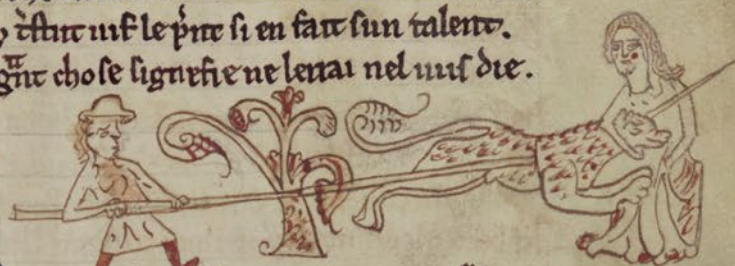 tut uif le p̄nt si en fait sun talent.
g̃nt chose signefie ne lerrai nel uus die.